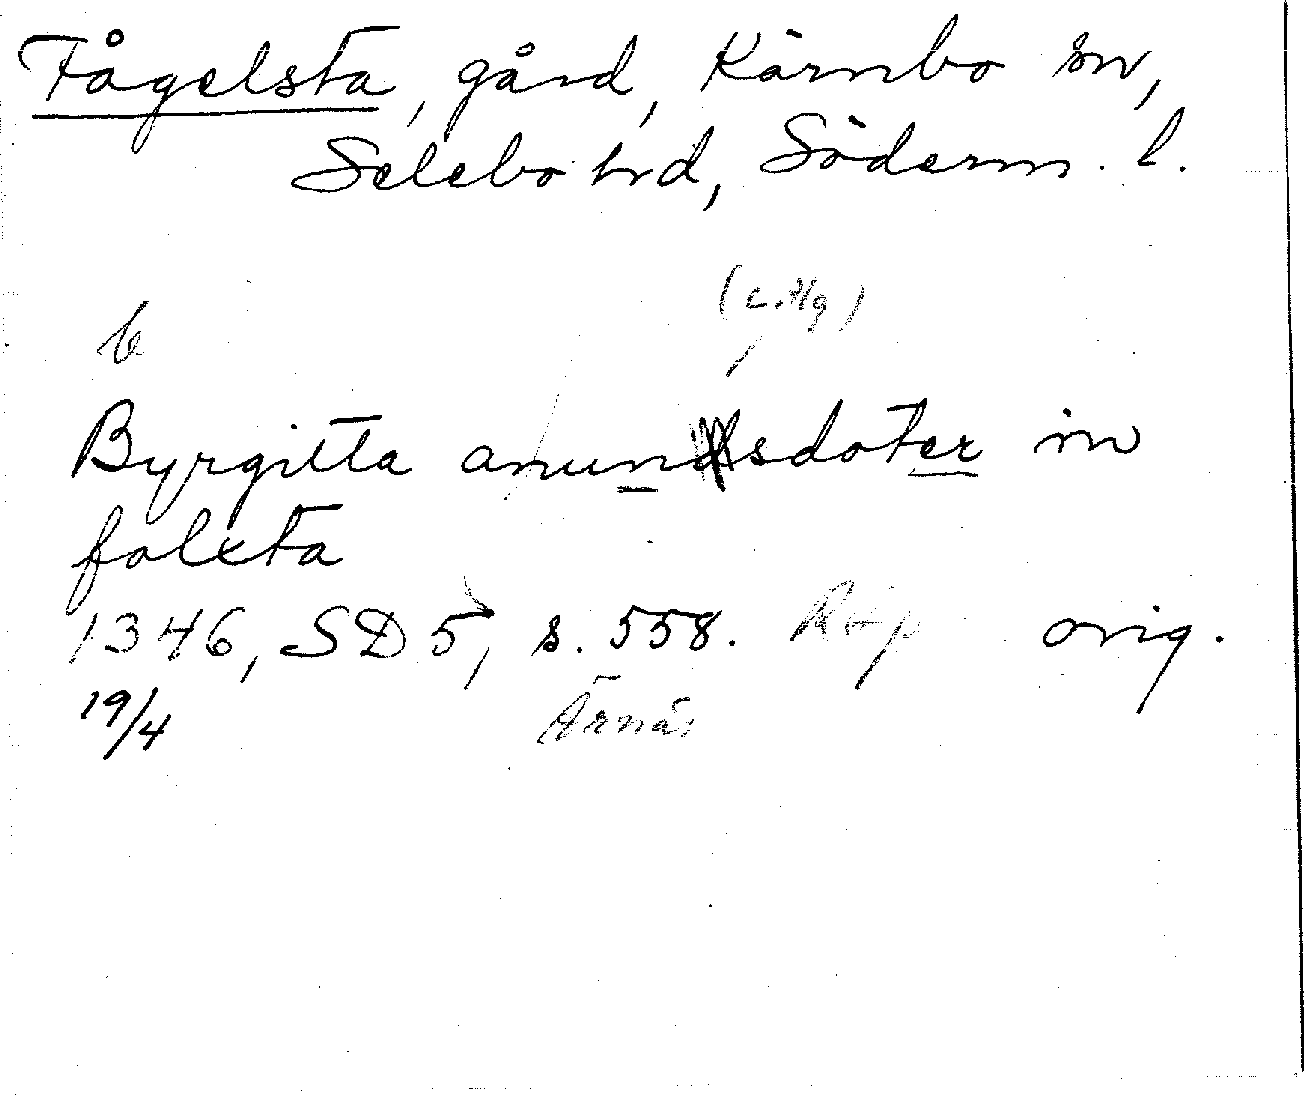 Fågelsta, gård, Kärnbo sn,
Selebo hrd, Söderm. l.
(c. Hg)
b
Byrgitta anunsdoter in
folxta
1346, SD 5, s. 558. Rap orig.
19/4 Ärnäs